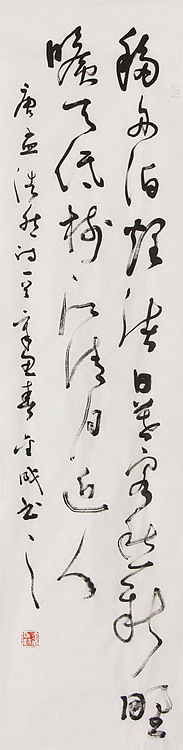 移舟泊煙渚日暮客愁新野
曠天低樹江清月近人
唐孟浩然詩一首春書